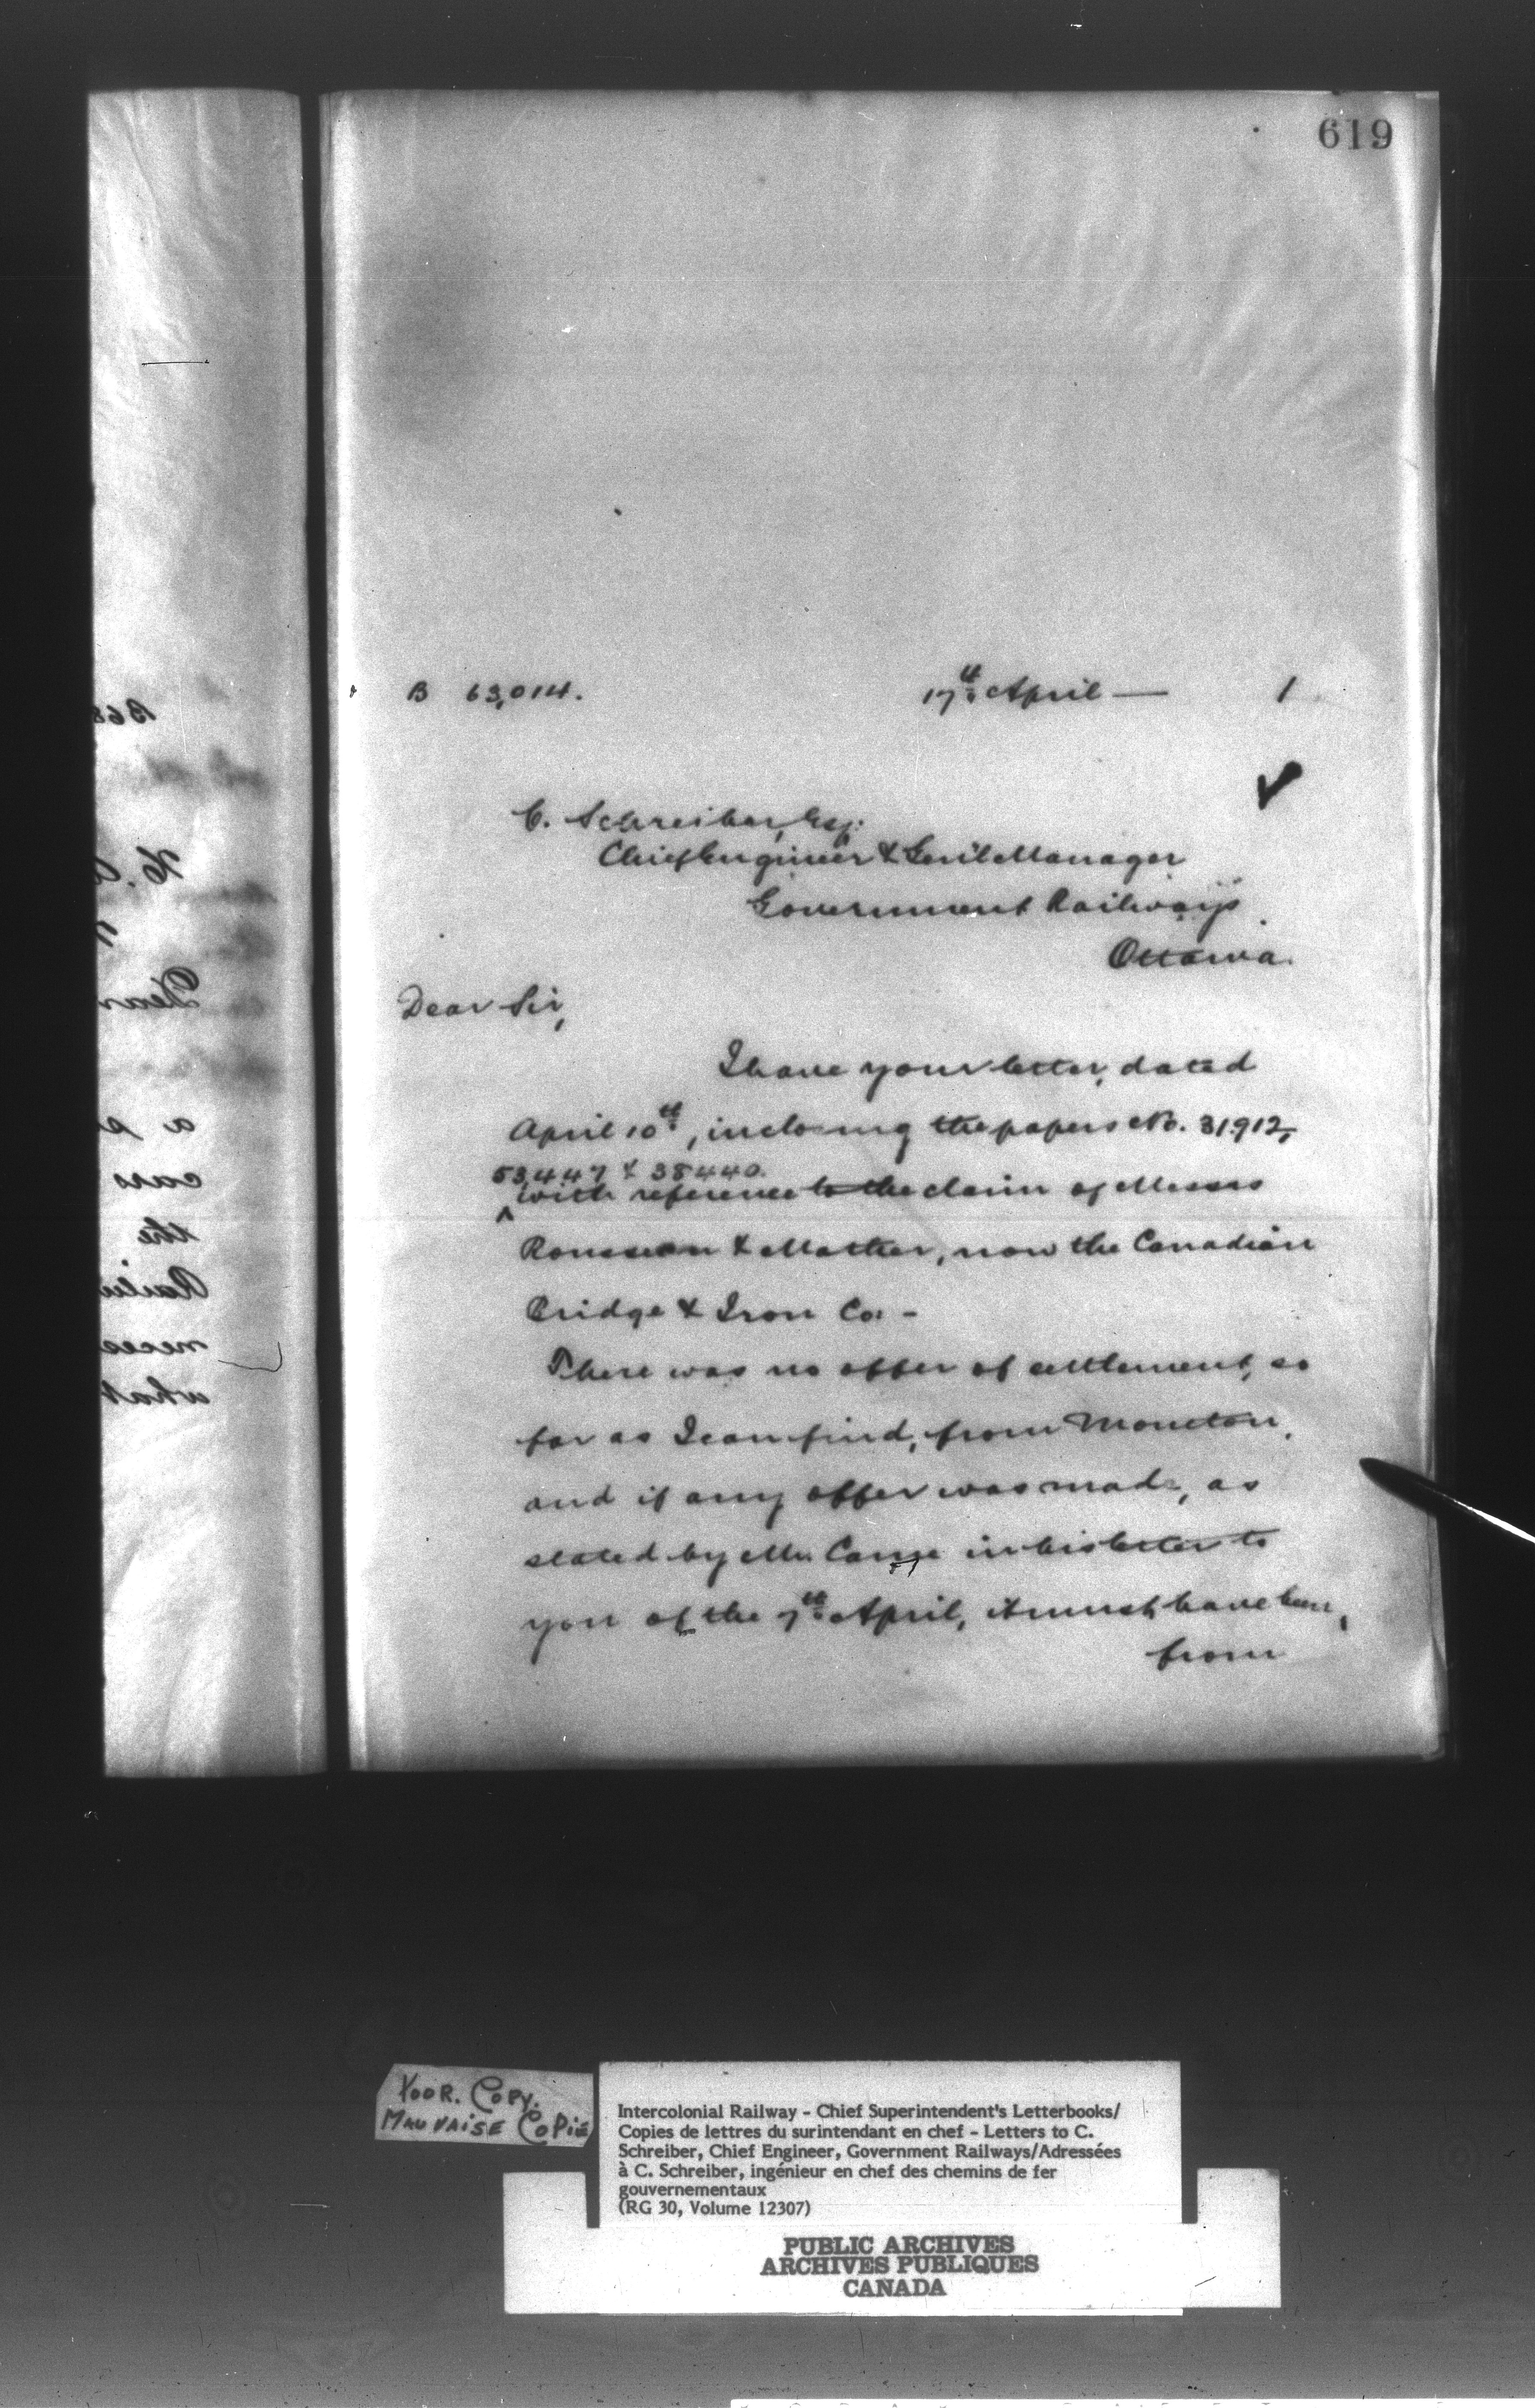 619
B 63,014. 17th April — 1
C. Schreiber, Esq.
Chief Engineer & Gen'l Manager
Government Railways
Ottawa.
Dear Sir,
I have your letter, dated
April 10th, inclosing the papers No. 31912,
53,447 & 38440.
with reference to the claim of Messrs
Rousseau & Mather, now the Canadian
Bridge & Iron Co. -
There was no offer of settlement, so
far as I can find, from Moncton,
and if any offer was made, as
stated by Mr. in his letter to
you of the 7th April, it must have been,
from
B 63
Dear
a p
cars
the
Railw
neces
what
POOR. COPY.
MAUVAISE COPIE
Intercolonial Railway - Chief Superintendent's Letterbooks/
Copies de lettres du surintendant en chef - Letters to C.
Schreiber, Chief Engineer, Government Railways/Adressées
à C. Schreiber, ingénieur en chef des chemins de fer
gouvernementaux
(RG 30, Volume 12307)
PUBLIC ARCHIVES
ARCHIVES PUBLIQUES
CANADA